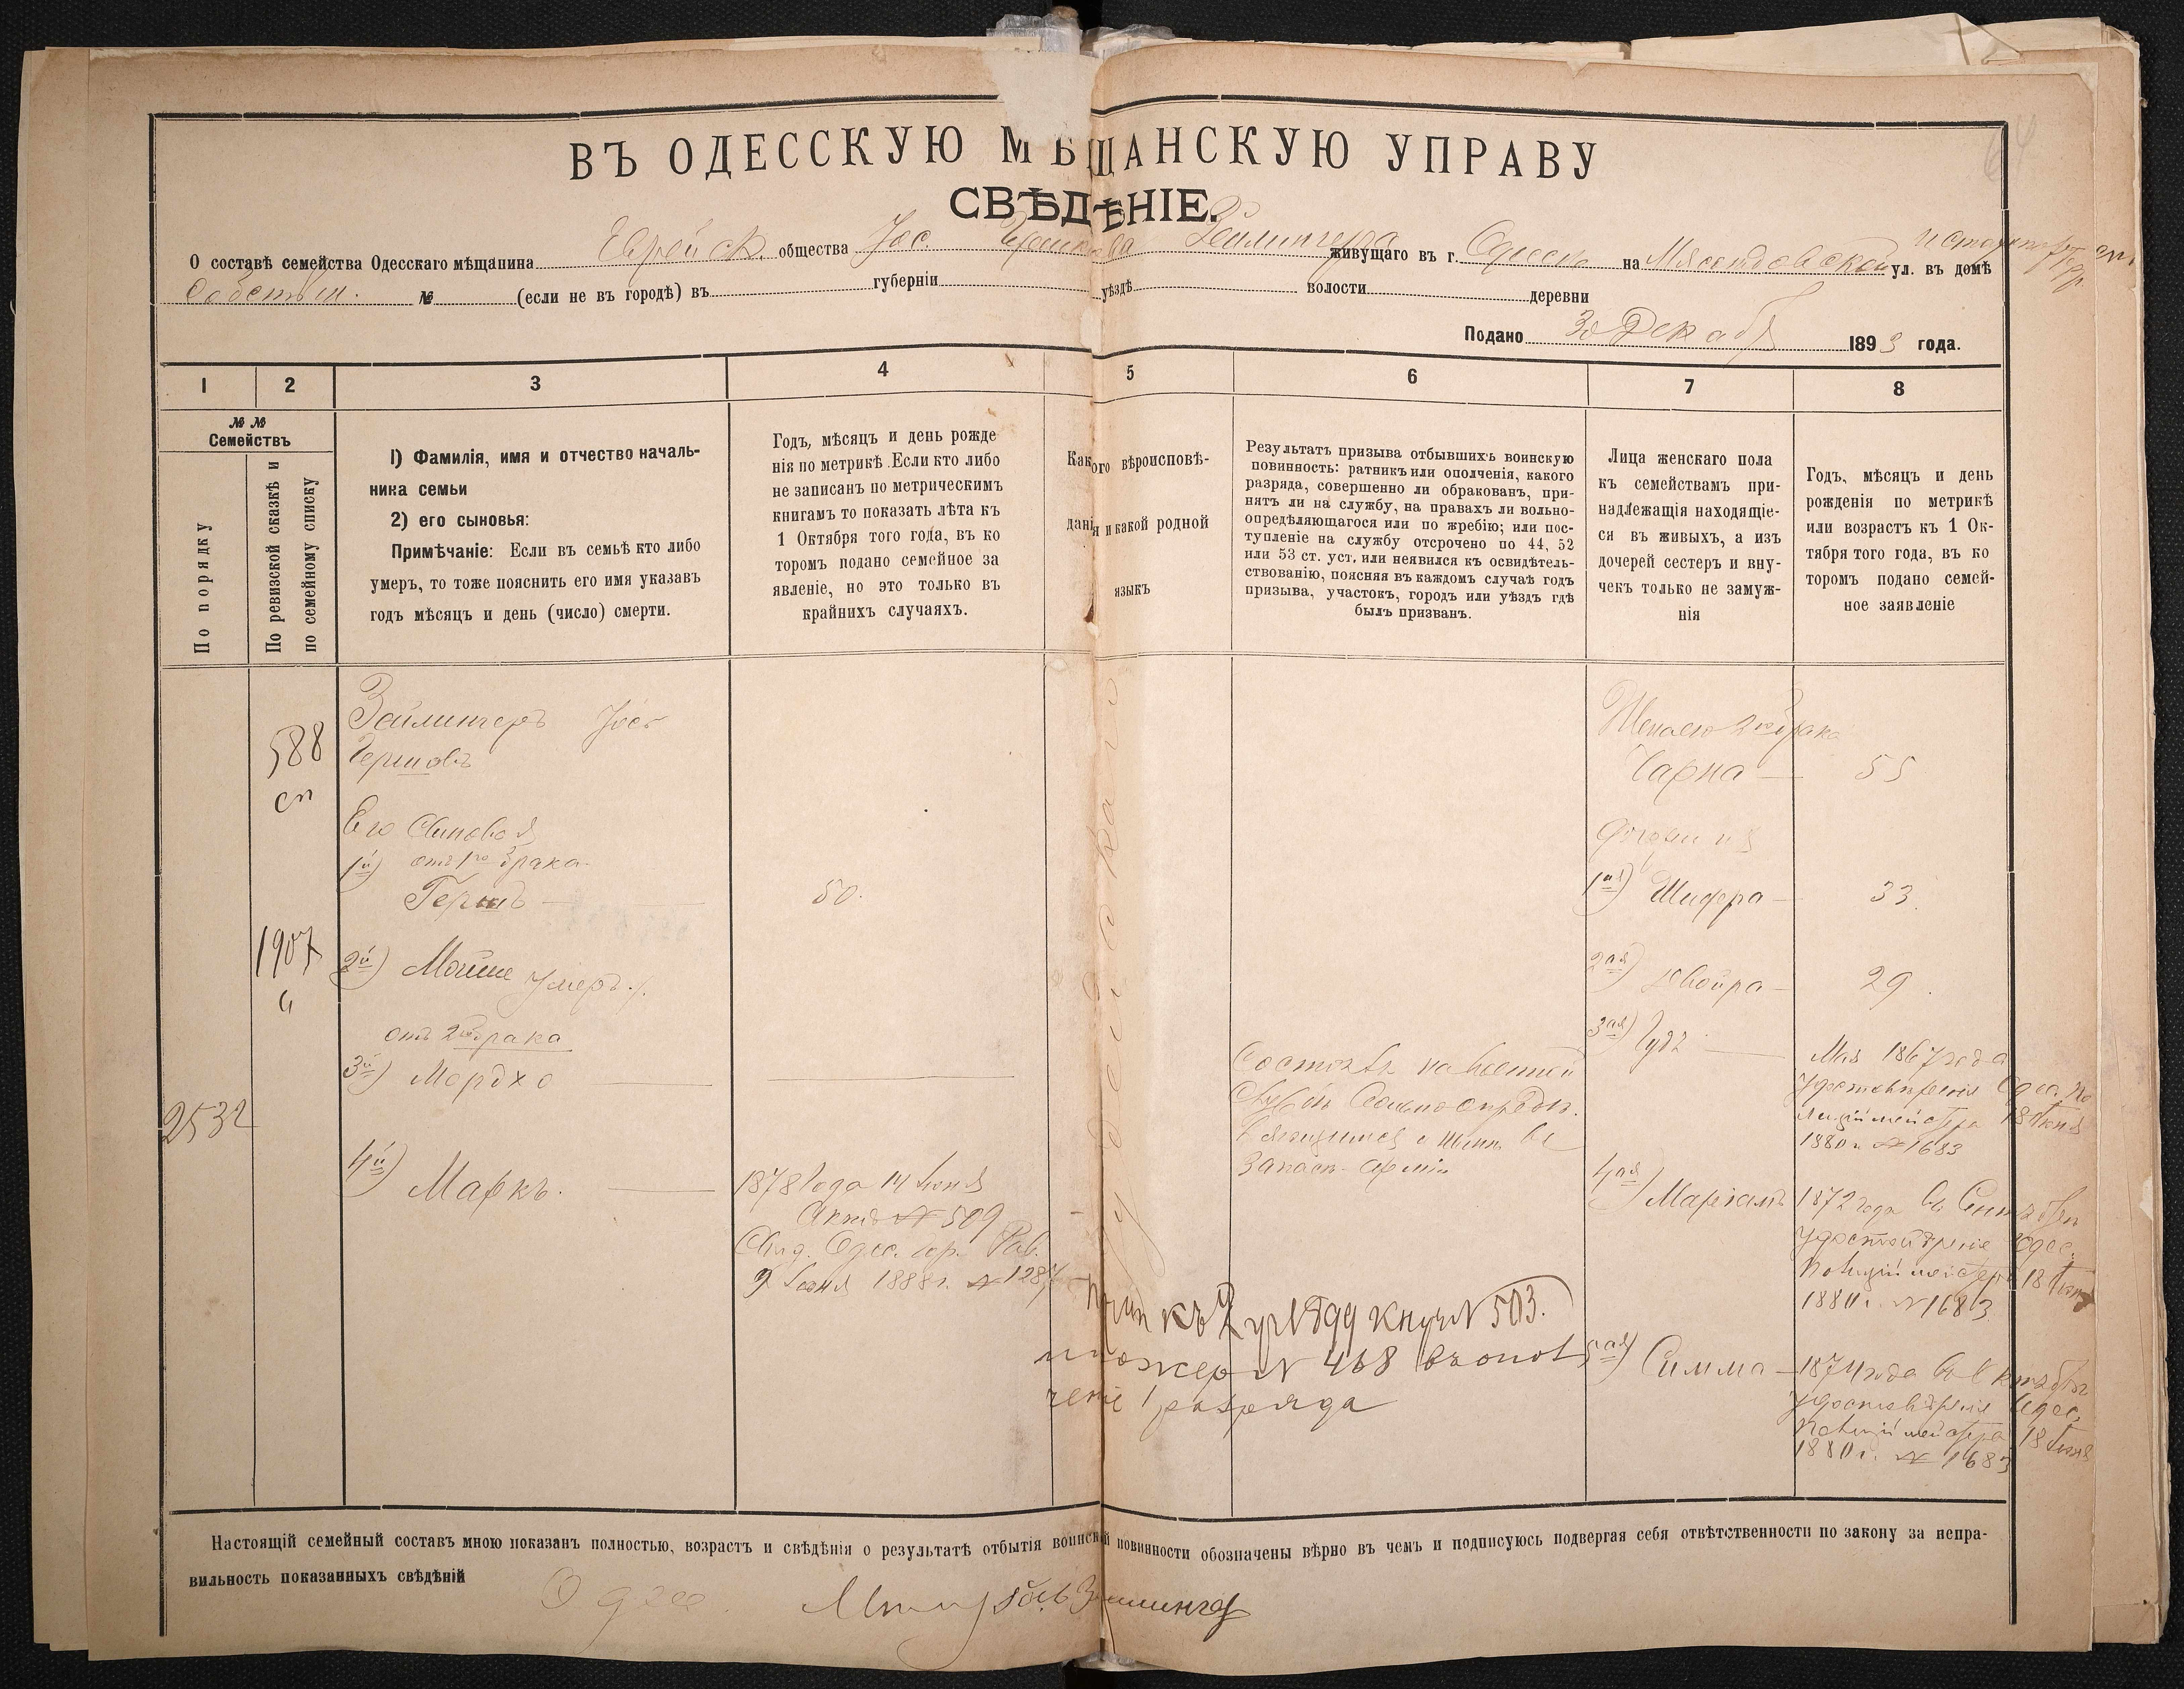 ВЪ ОДЕССКУЮ МѢЩАНСКУЮ УПРАВУ
СВѢДѢНІЕ.
О составѣ семейства Одесскаго мѣщанина Еврейск. общества Іос. Зейлингера живущаго въ г. Одессѣ на Мясоѣдовской ул. въ домѣ
Собствен. № (если не въ городѣ) въ губерніи уѣздѣ волости деревни
Подано 30 Декабр 1893 года.
1 2 3 4 5 6 7 8
№ №
Семействъ
По порядку
По ревизской сказкѣ и
по семейному списку
1) Фамилія, имя и отчество началь-
ника семьи
2) его сыновья:
Примѣчаніе: Если въ семьѣ кто либо
умеръ, то тоже пояснить его имя указавъ
годъ мѣсяцъ и день (число) смерти.
Годъ, мѣсяцъ и день рожде
нія по метрикѣ .Если кто либо
не записанъ по метрическимъ
книгамъ то показать лѣта къ
1 Октября того года, въ ко
торомъ подано семейное за
явленіе, но это только въ
крайнихъ случаяхъ.
Какого вѣроисповѣ-
данія и какой родной
языкъ
Результатъ призыва отбывшихъ воинскую
повинность: ратникъ или ополченія, какого
разряда, совершенно ли обракованъ, при-
нятъ ли на службу, на правахъ ли вольно-
опредѣляющагося или по жребію; или пос-
тупленіе на службу отсрочено по 44, 52
или 53 ст. уст. или неявился къ освидѣтель-
ствованію, поясняя въ каждомъ случаѣ годъ
призыва, участокъ, городъ или уѣздъ гдѣ
былъ призванъ.
Лица женскаго пола
къ семействамъ при-
надлежащія находящіе-
ся въ живыхъ, а изъ
дочерей сестеръ и вну-
чекъ только не замуж-
нія
Годъ, мѣсяцъ и день
рожденія по метрикѣ
или возрастъ къ 1 Ок-
тября того года, въ ко
торомъ подано семей-
ное заявленіе
588
сп
1907
2532
Зейлингеръ Іосъ
Гершовъ
Его Сыновья
1й) отъ 1го брака
Гершъ
50.
2й) Мойше умеръ
отъ 2го брака
3й) Мордхо
4й) Маркъ.
1878 года 14 Іюня
Актъ № 509
Свид. Одес. Гор. Рав.
9 Іюня 1888 г. №
Іудейскаго
Состоитъ на
запасн. арміи
къ № 99 № 503.
жер № 468 въ опол
ченіе 1 разряда
2го брака
Чарна 55
1ая) Шифра 33
2ая) Двойра 29
3ая)
Мая 1867 года
Удостовѣренія Одес. По
лиціймейстера 18 Іюня
1880 г. № 1683
4ая) Маріамъ 1872 года въ Сентябрѣ
удостовѣреніе Одес.
Полиціймейстера 18 Іюня
1880 г. № 1683
5ая) Симма 1874 года въ
удостовѣреніе Одес.
Полиціймейстера 18 Іюня
1880 г. № 1683
Настоящій семейный составъ мною показанъ полностью, возрастъ и свѣдѣнія о результатѣ отбытія воинской повинности обозначены вѣрно въ чемъ и подписуюсь подвергая себя отвѣтственности по закону за непра-
вильность показанныхъ свѣдѣній
Одес. Зейлингер